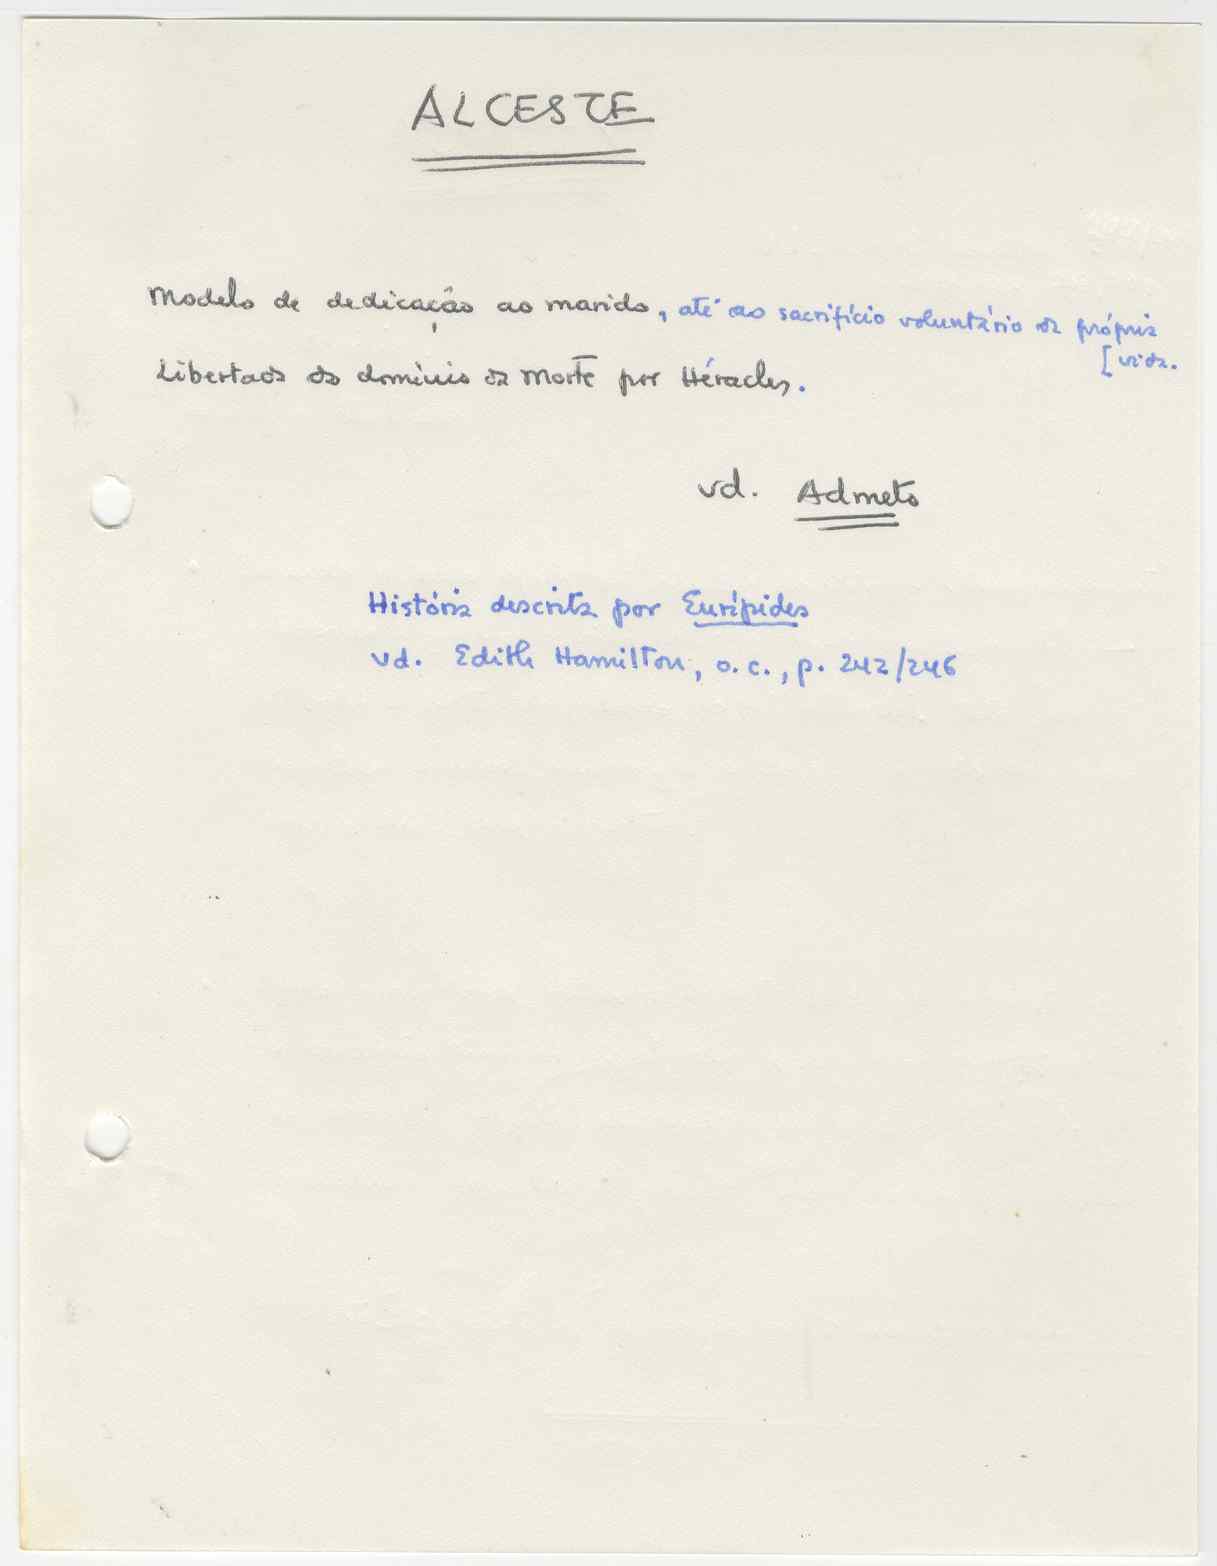 ALCESTE
Modelo de dedicação ao marido, até ao sacrifício voluntário da própria
[vida.
Libertada do domínio da Morte por Héracles.
vd. Admeto
História descrita por Eurípides
vd. Edith Hamilton, o.c., p. 242/246